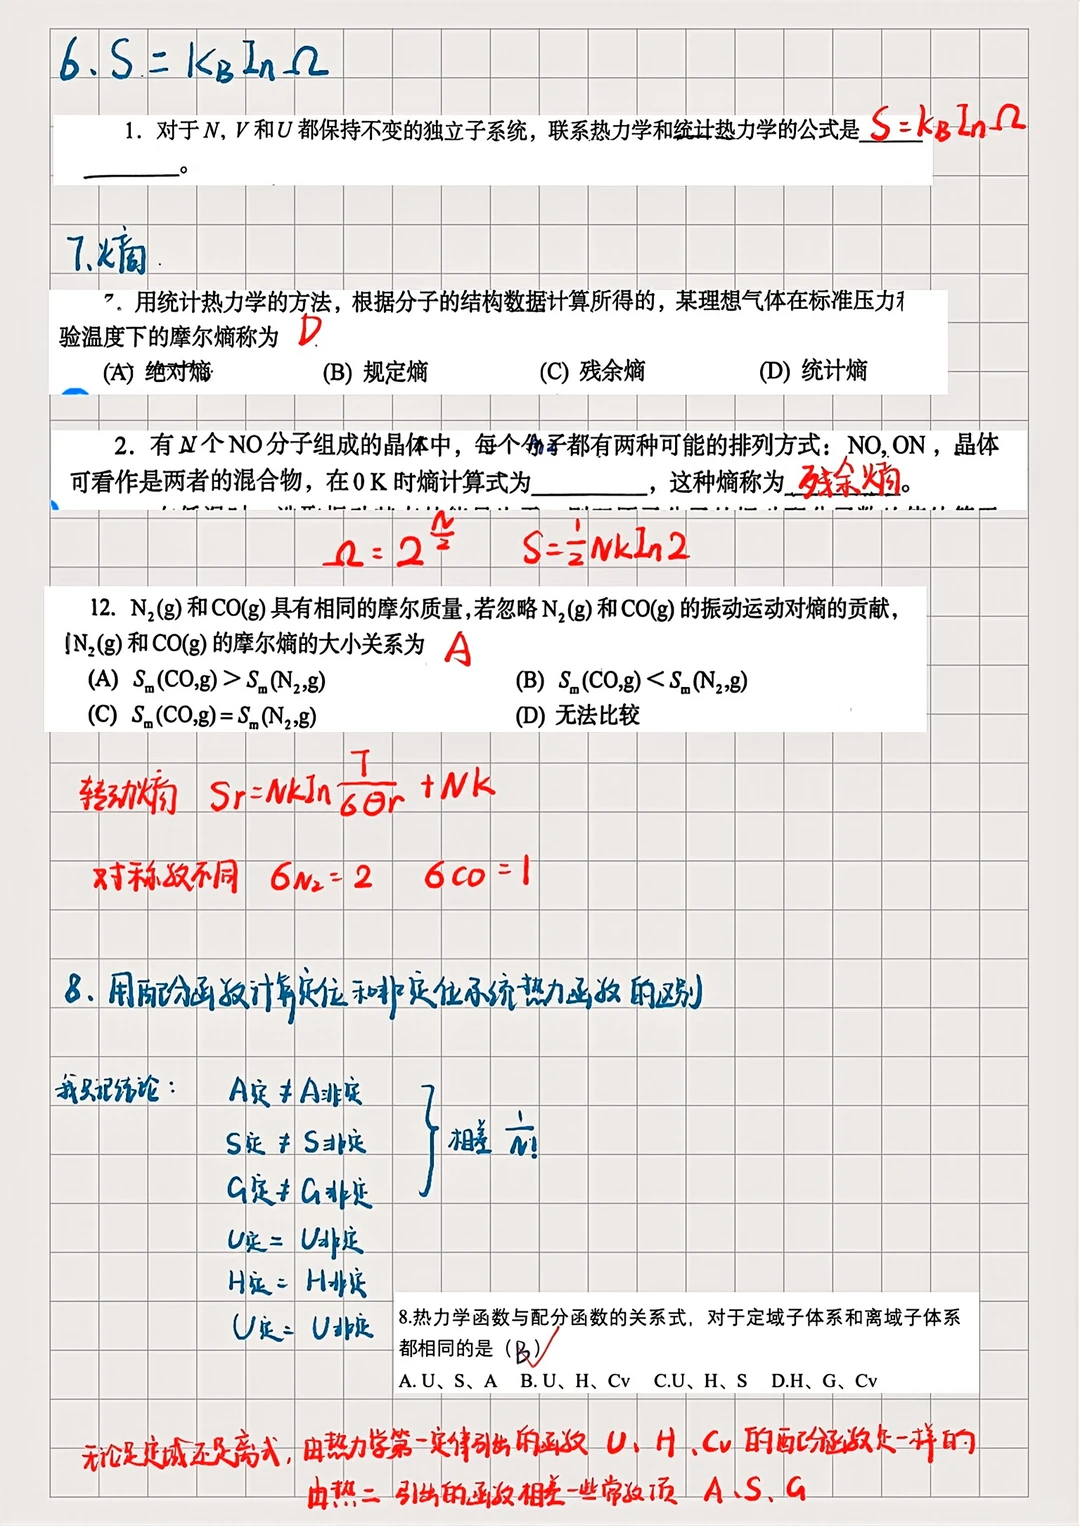 6、S = KB In Ω
1. 对于 N, V 和 U 都保持不变的独立子系统，联系热力学和统计热力学的公式是 S=kB In Ω
。
7、熵
7. 用统计热力学的方法，根据分子的结构数据计算所得的，某理想气体在标准压力
验温度下的摩尔熵称为 D
(A) 绝对熵 (B) 规定熵 (C) 残余熵 (D) 统计熵
2. 有 N 个 NO 分子组成的晶体中，每个分子都有两种可能的排列方式：NO, ON，晶体
可看作是两者的混合物，在 0 K 时熵计算式为________，这种熵称为 残余熵。
Ω = 2^(N/2) S=1/2 NkIn2
12. N₂(g) 和 CO(g) 具有相同的摩尔质量，若忽略 N₂(g) 和 CO(g) 的振动运动对熵的贡献，
N₂(g) 和 CO(g) 的摩尔熵的大小关系为 A
(A) Sm(CO,g) > Sm(N₂,g) (B) Sm(CO,g) < Sm(N₂,g)
(C) Sm(CO,g) = Sm(N₂,g) (D) 无法比较
转动熵 Sr=NkIn T/6Θr + Nk
对称数不同 6N₂ = 2 6CO = 1
8、用配分函数计算定位和非定位系统热力函数的区别
我只记结论：
A定 ≠ A非定
S定 ≠ S非定 相差 1/N!
G定 ≠ G非定
U定 = U非定
H定 = H非定
U定 = U非定
8.热力学函数与配分函数的关系式，对于定域子体系和离域子体系
都相同的是（B）
A. U、S、A B. U、H、Cv C.U、H、S D.H、G、Cv
无论是定域还是离式，由热力学第一定律引出的函数 U、H、Cv 的配分函数是一样的
由热二引出的函数相差一些常数项 A、S、G